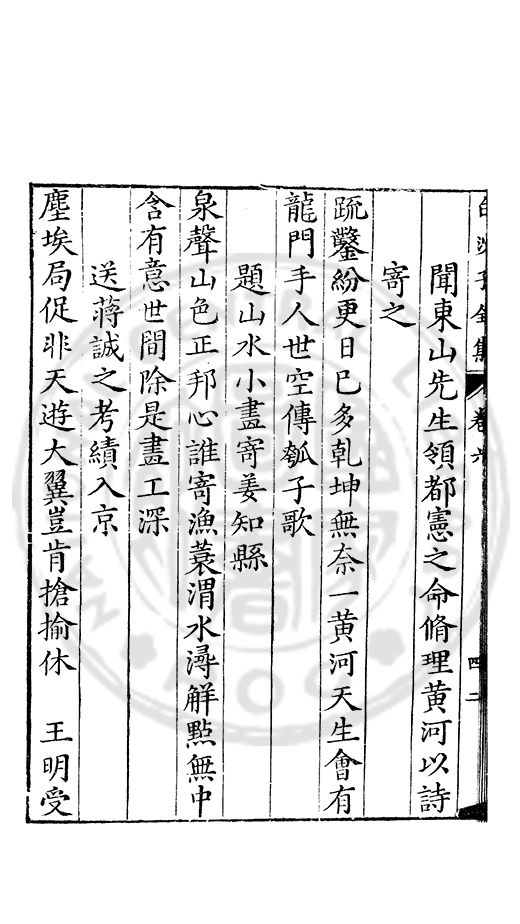 白沙子全集 卷六 四二
聞東山先生領都憲之命脩理黃河以詩
寄之
疏鑿紛更日已多乾坤無奈一黃河天生會有
龍門手人世空傳瓠子歌
題山水小畫寄姜知縣
泉聲山色正邦心誰寄漁蓑渭水潯觧點無中
含有意世間除是畫工深
送蔣誠之考績入京
塵埃局促非天遊大翼豈肯搶揄休 王明受